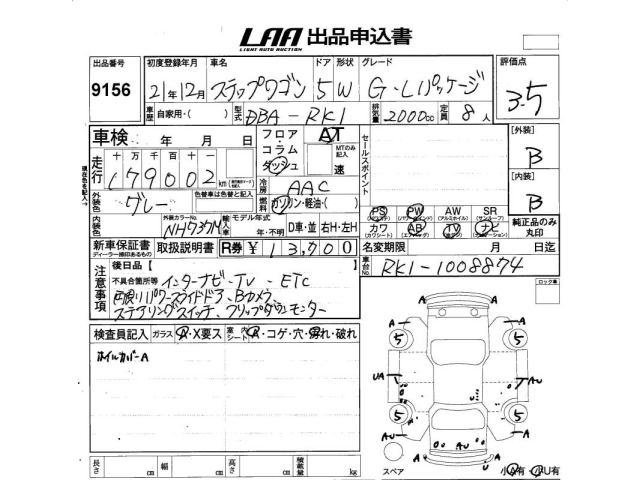 LAA 出品申込書
LIGHT AUTO AUCTION
出品番号 初度登録年月 車名 ドア 形状 グレード 評価点
9156 21年12月 ステップワゴン 5 W G・Lパッケージ 3.5
車歴 自家用・( ) 型式 DBA-RK1 排気量 2000cc 定員 8人
車検 年 月 日 フロア コラム ダッシュ AT MTのみ記入 速 セールスポイント [外装] B
走行 十万千百十一 179002 km
現在色を記入
外装色 グレー 色替車は色替と記入 冷房 AAC 燃料 ガソリン・軽油・( ) [内装] B
PS (パワステ) PW (パワーウインド) AW (アルミホイル) SR (サンルーフ)
内装色 外装カラーNo. NH737M 輸入車 モデル年式 年・不明 D車・並 右H・左H カワ (カワシート) AB (エアバッグ) TV ナビ 純正品のみ丸印
新車保証書 ディーラー捺印あるもの 取扱説明書 R券 ¥13,700 名変期限 月 日迄
注意事項 後日品[ ] 車台No. RK1-1008874
不具合箇所等 インターナビ・TV・ETC
両側リパワースライドドア、Bカメラ、
ステアリングスイッチ、フリップダウンモニター
ロック車
検査員記入 ガラス A・X要ス 室内 シート A・コゲ・穴・汚れ・破れ
ホイルカバーA
A A
A A
5 5
UA AU
A A
5 5
AU
A A
長さ cm 幅 cm 高さ cm 積載量 kg スペア 小A有・小U有